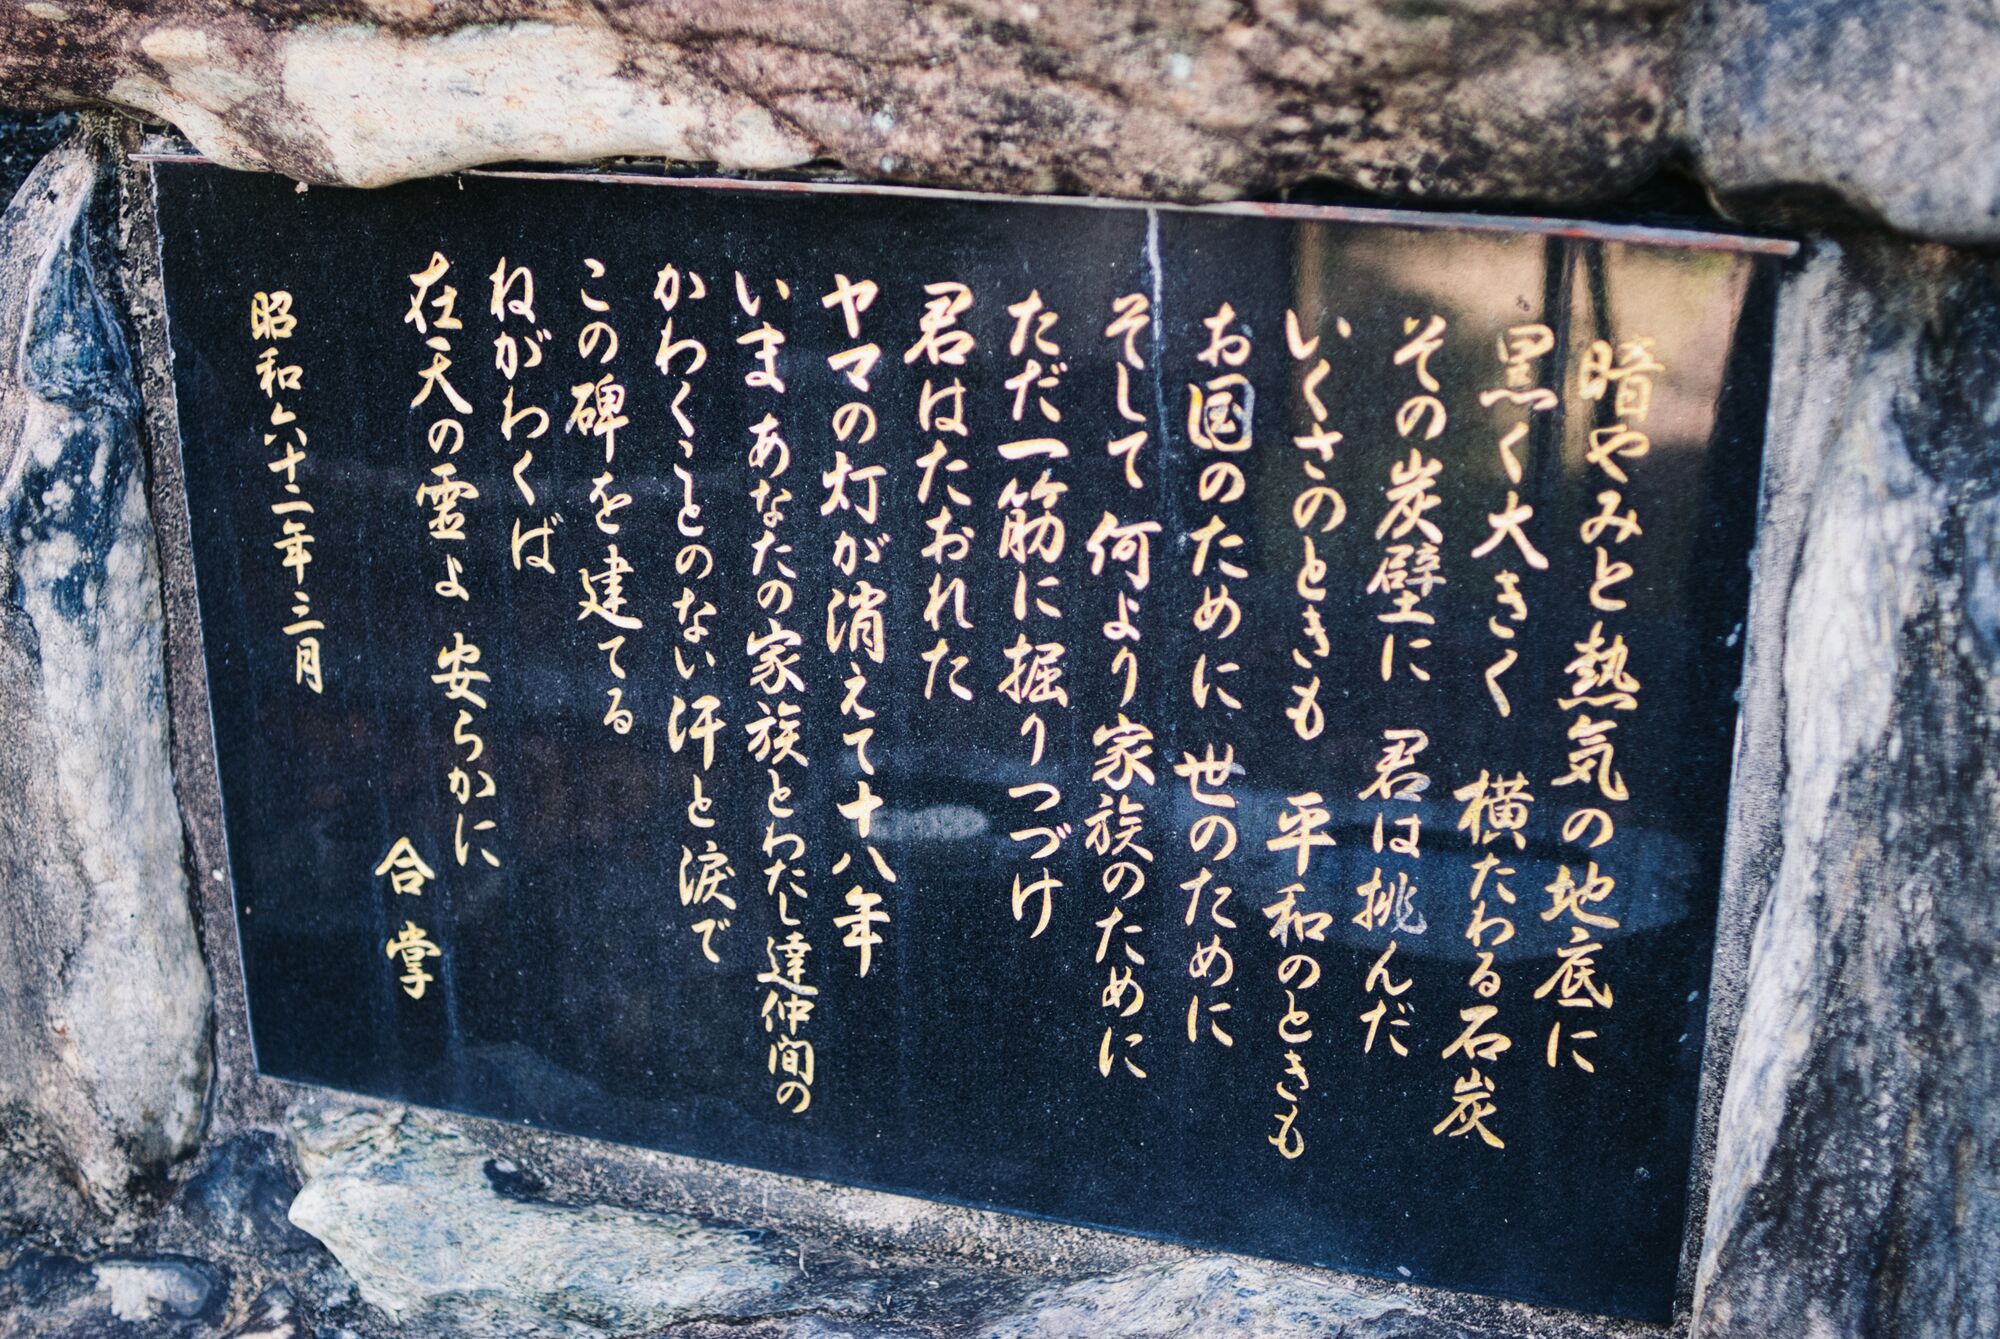 暗やみと熱気の地底に
黒く大きく 横たわる石炭
その炭壁に 君は挑んだ
いくさのときも 平和のときも
お国のために 世のために
そして 何より家族のために
ただ一筋に掘りつづけ
君はたおれた
ヤマの灯が消えて十八年
いま あなたの家族とわたし達仲間の
かわくことのない汗と涙で
この碑を建てる
ねがわくば
在天の霊よ 安らかに
合掌
昭和六十二年三月